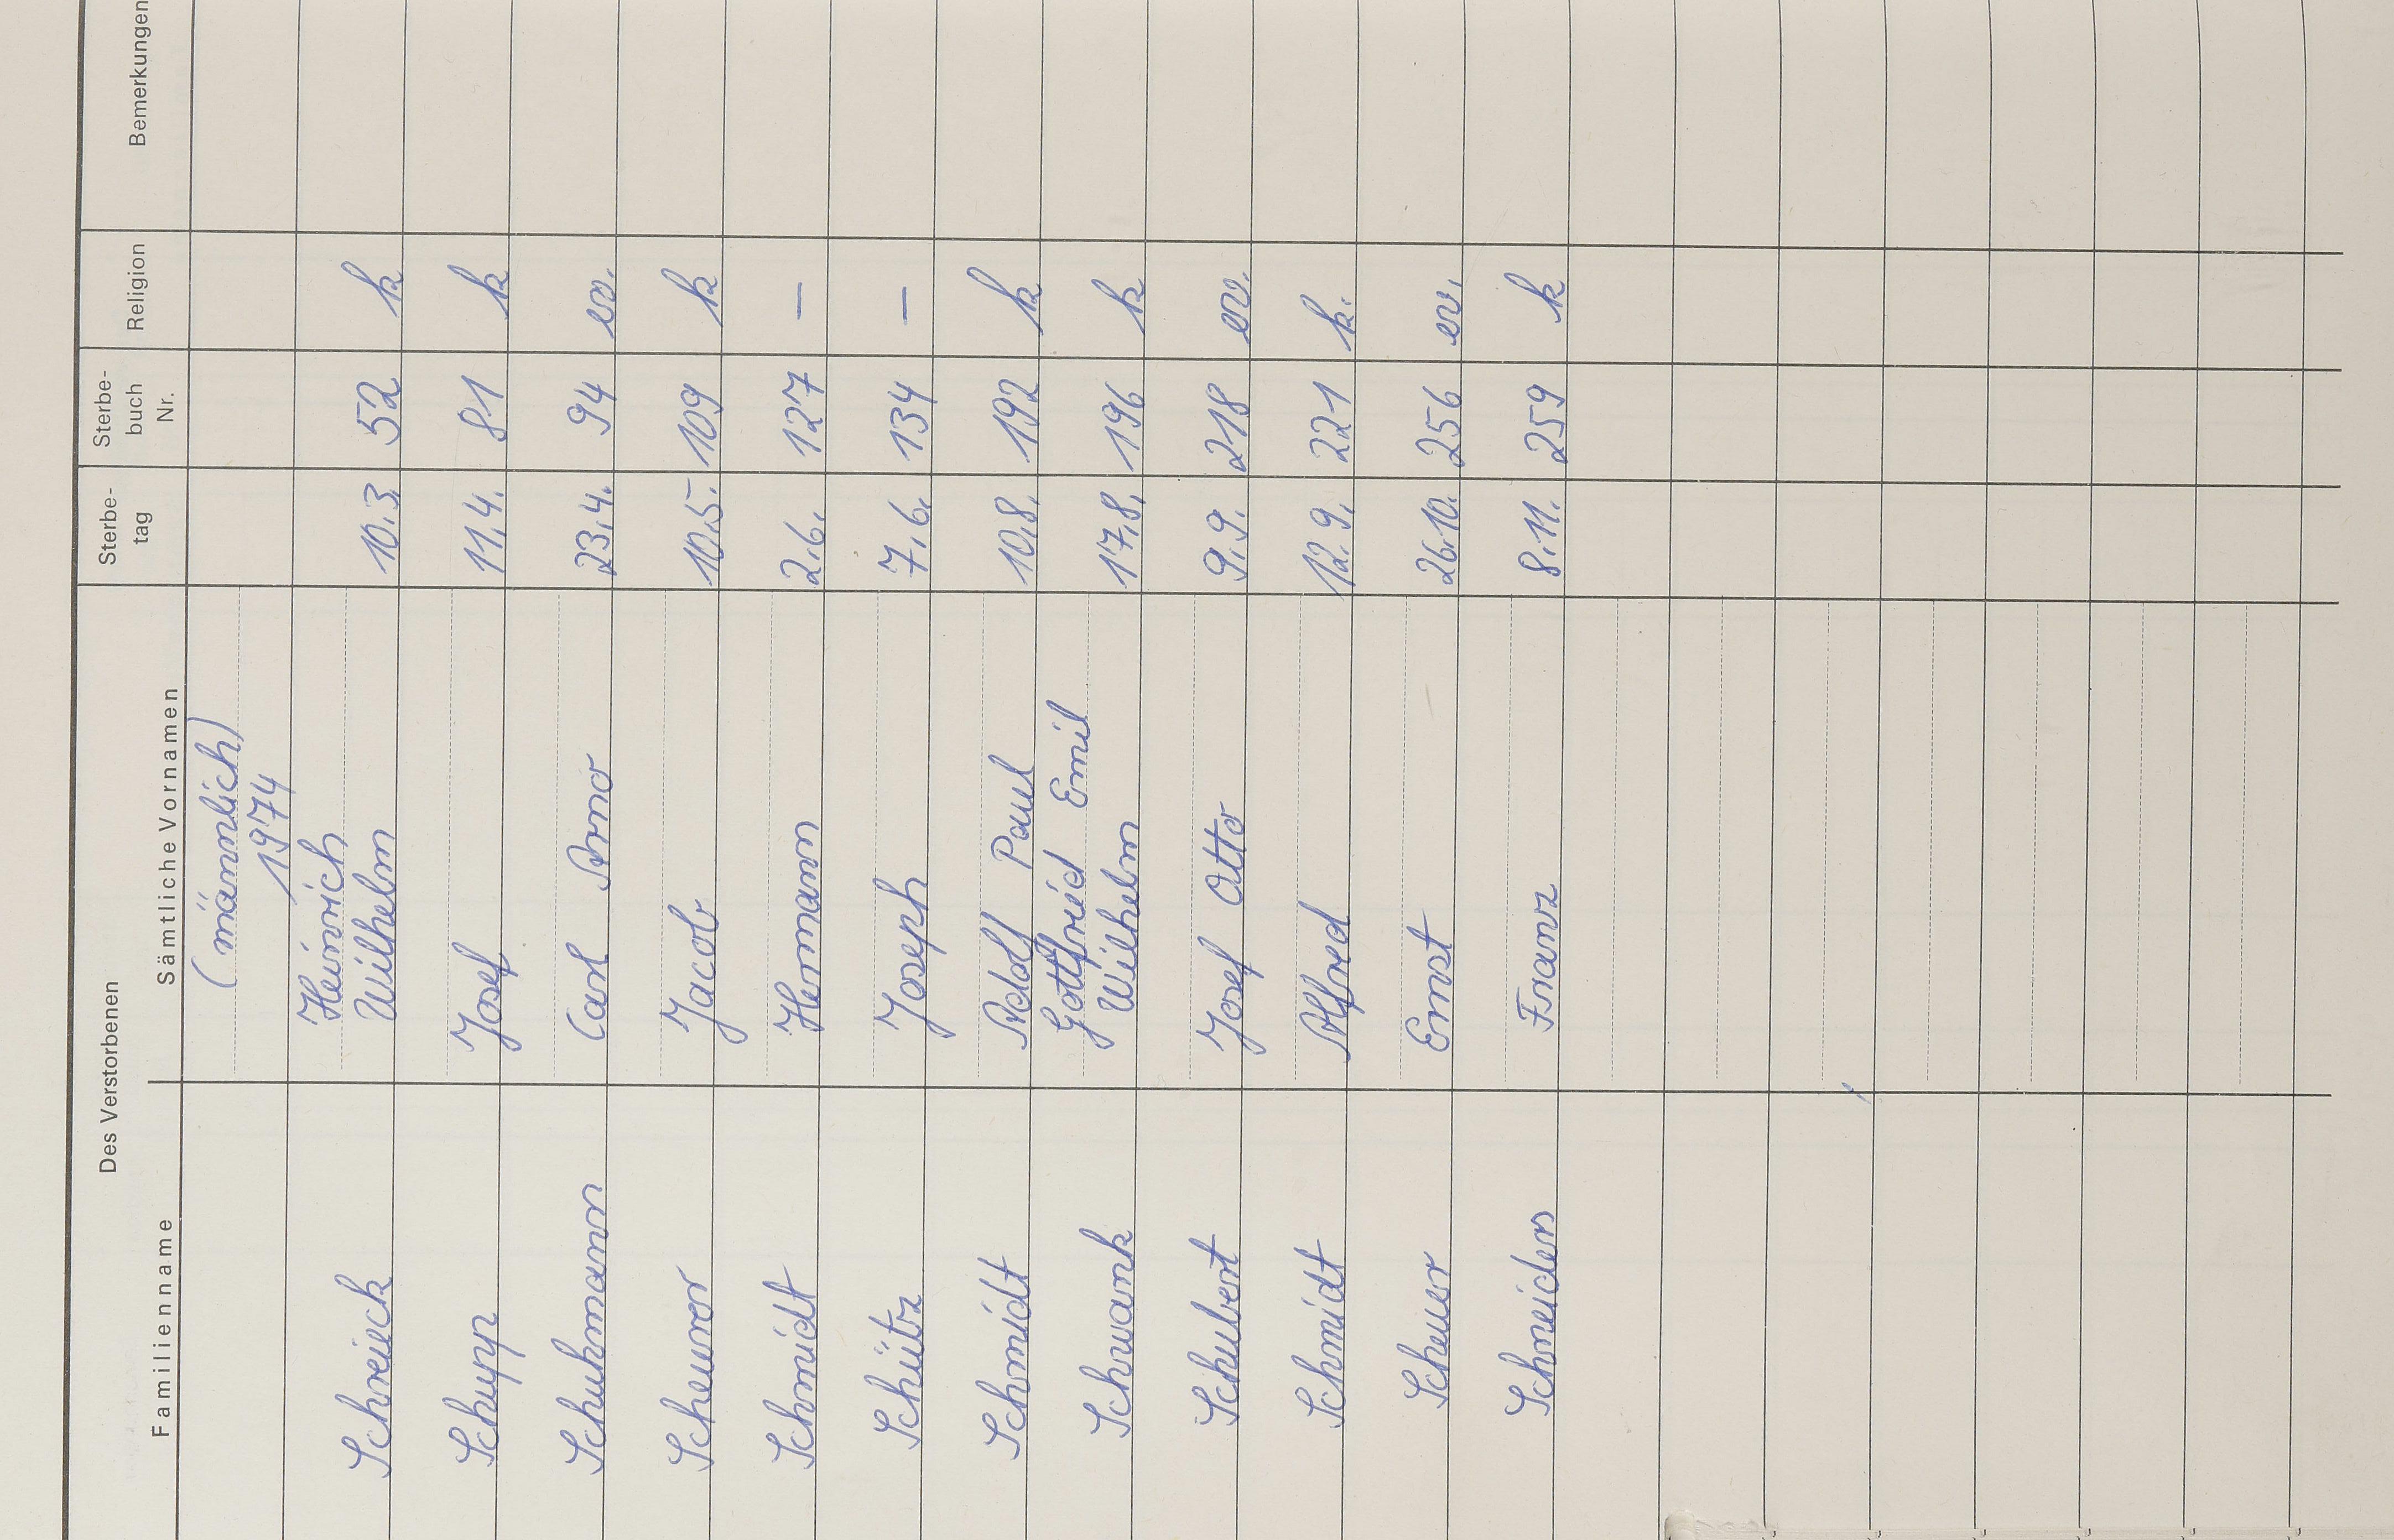 Des Verstorbenen
Familienname Sämtliche Vornamen Sterbe- tag Sterbe- buch Nr. Religion Bemerkungen
(männlich)
1974
Heinrich
Schreieck Wilhelm 10.3. 52 k
Schupp Josef 11.4. 81 k
Schuhmann Carl Arno 23.4. 94 ev.
Scheurer Jacob 10.5. 109 k
Schmidt Hermann 2.6. 127 –
Schütz Joseph 7.6. 134 –
Schmidt Adolf Paul 10.8. 192 k
Gottfried Emil
Schwank Wilhelm 17.8. 196 k
Schubert Josef Otto 9.9. 218 ev.
Schmidt Alfred 12.9. 221 k.
Scheuer Ernst 26.10. 256 ev.
Schneiders Franz 8.11. 259 k